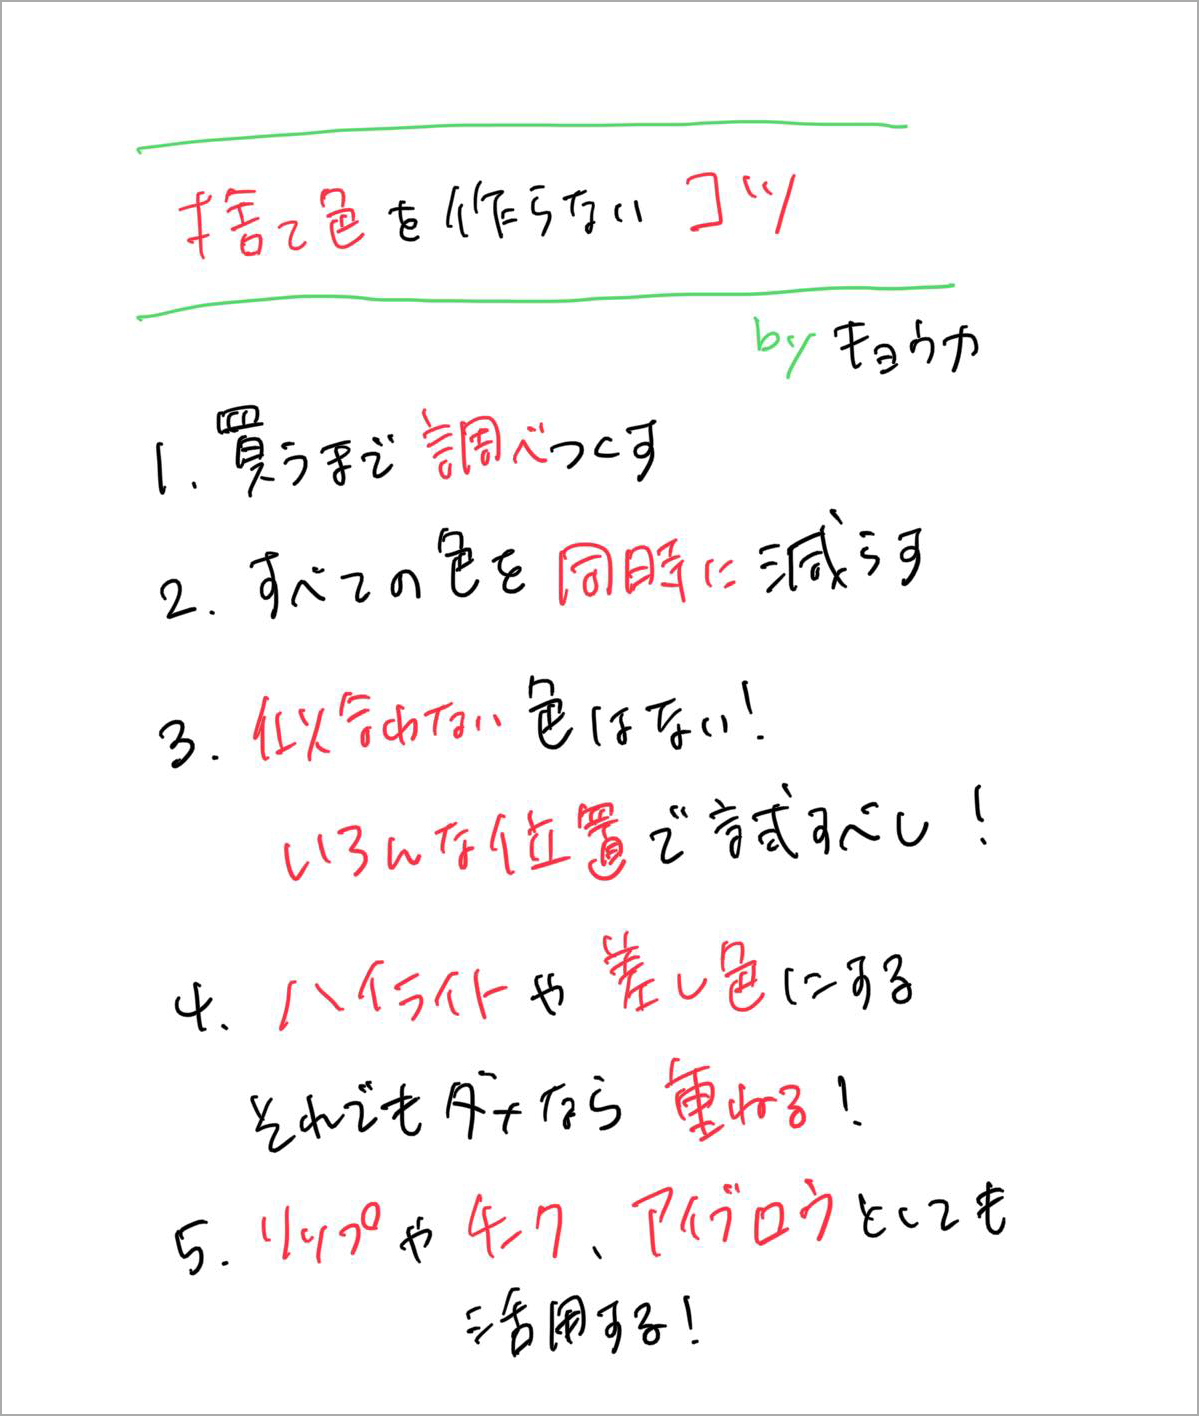 捨て色を作らないコツ
by キョウカ
1. 買うまで調べつくす
2. すべての色を同時に減らす
3. 似合わない色はない!
いろんな位置で試すべし!
4. ハイライトや差し色にする
それでもダメなら重ねる!
5. リップやチーク、アイブロウとしても
活用する!